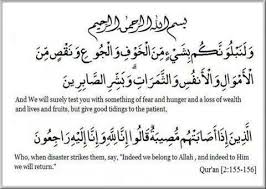 بسم الله الرحمن الرحيم
وَلَنَبْلُوَنَّكُم بِشَيْءٍ مِّنَ الْخَوْفِ وَالْجُوعِ وَنَقْصٍ مِّنَ
الْأَمْوَالِ وَالْأَنفُسِ وَالثَّمَرَاتِ ۗ وَبَشِّرِ الصَّابِرِينَ
And We will surely test you with something of fear and hunger and a loss of wealth
and lives and fruits, but give good tidings to the patient.
الَّذِينَ إِذَا أَصَابَتْهُم مُّصِيبَةٌ قَالُوا إِنَّا لِلَّهِ وَإِنَّا إِلَيْهِ رَاجِعُونَ
Who, when disaster strikes them, say, "Indeed we belong to Allah , and indeed to Him
we will return."
Qur'an [2:155-156]